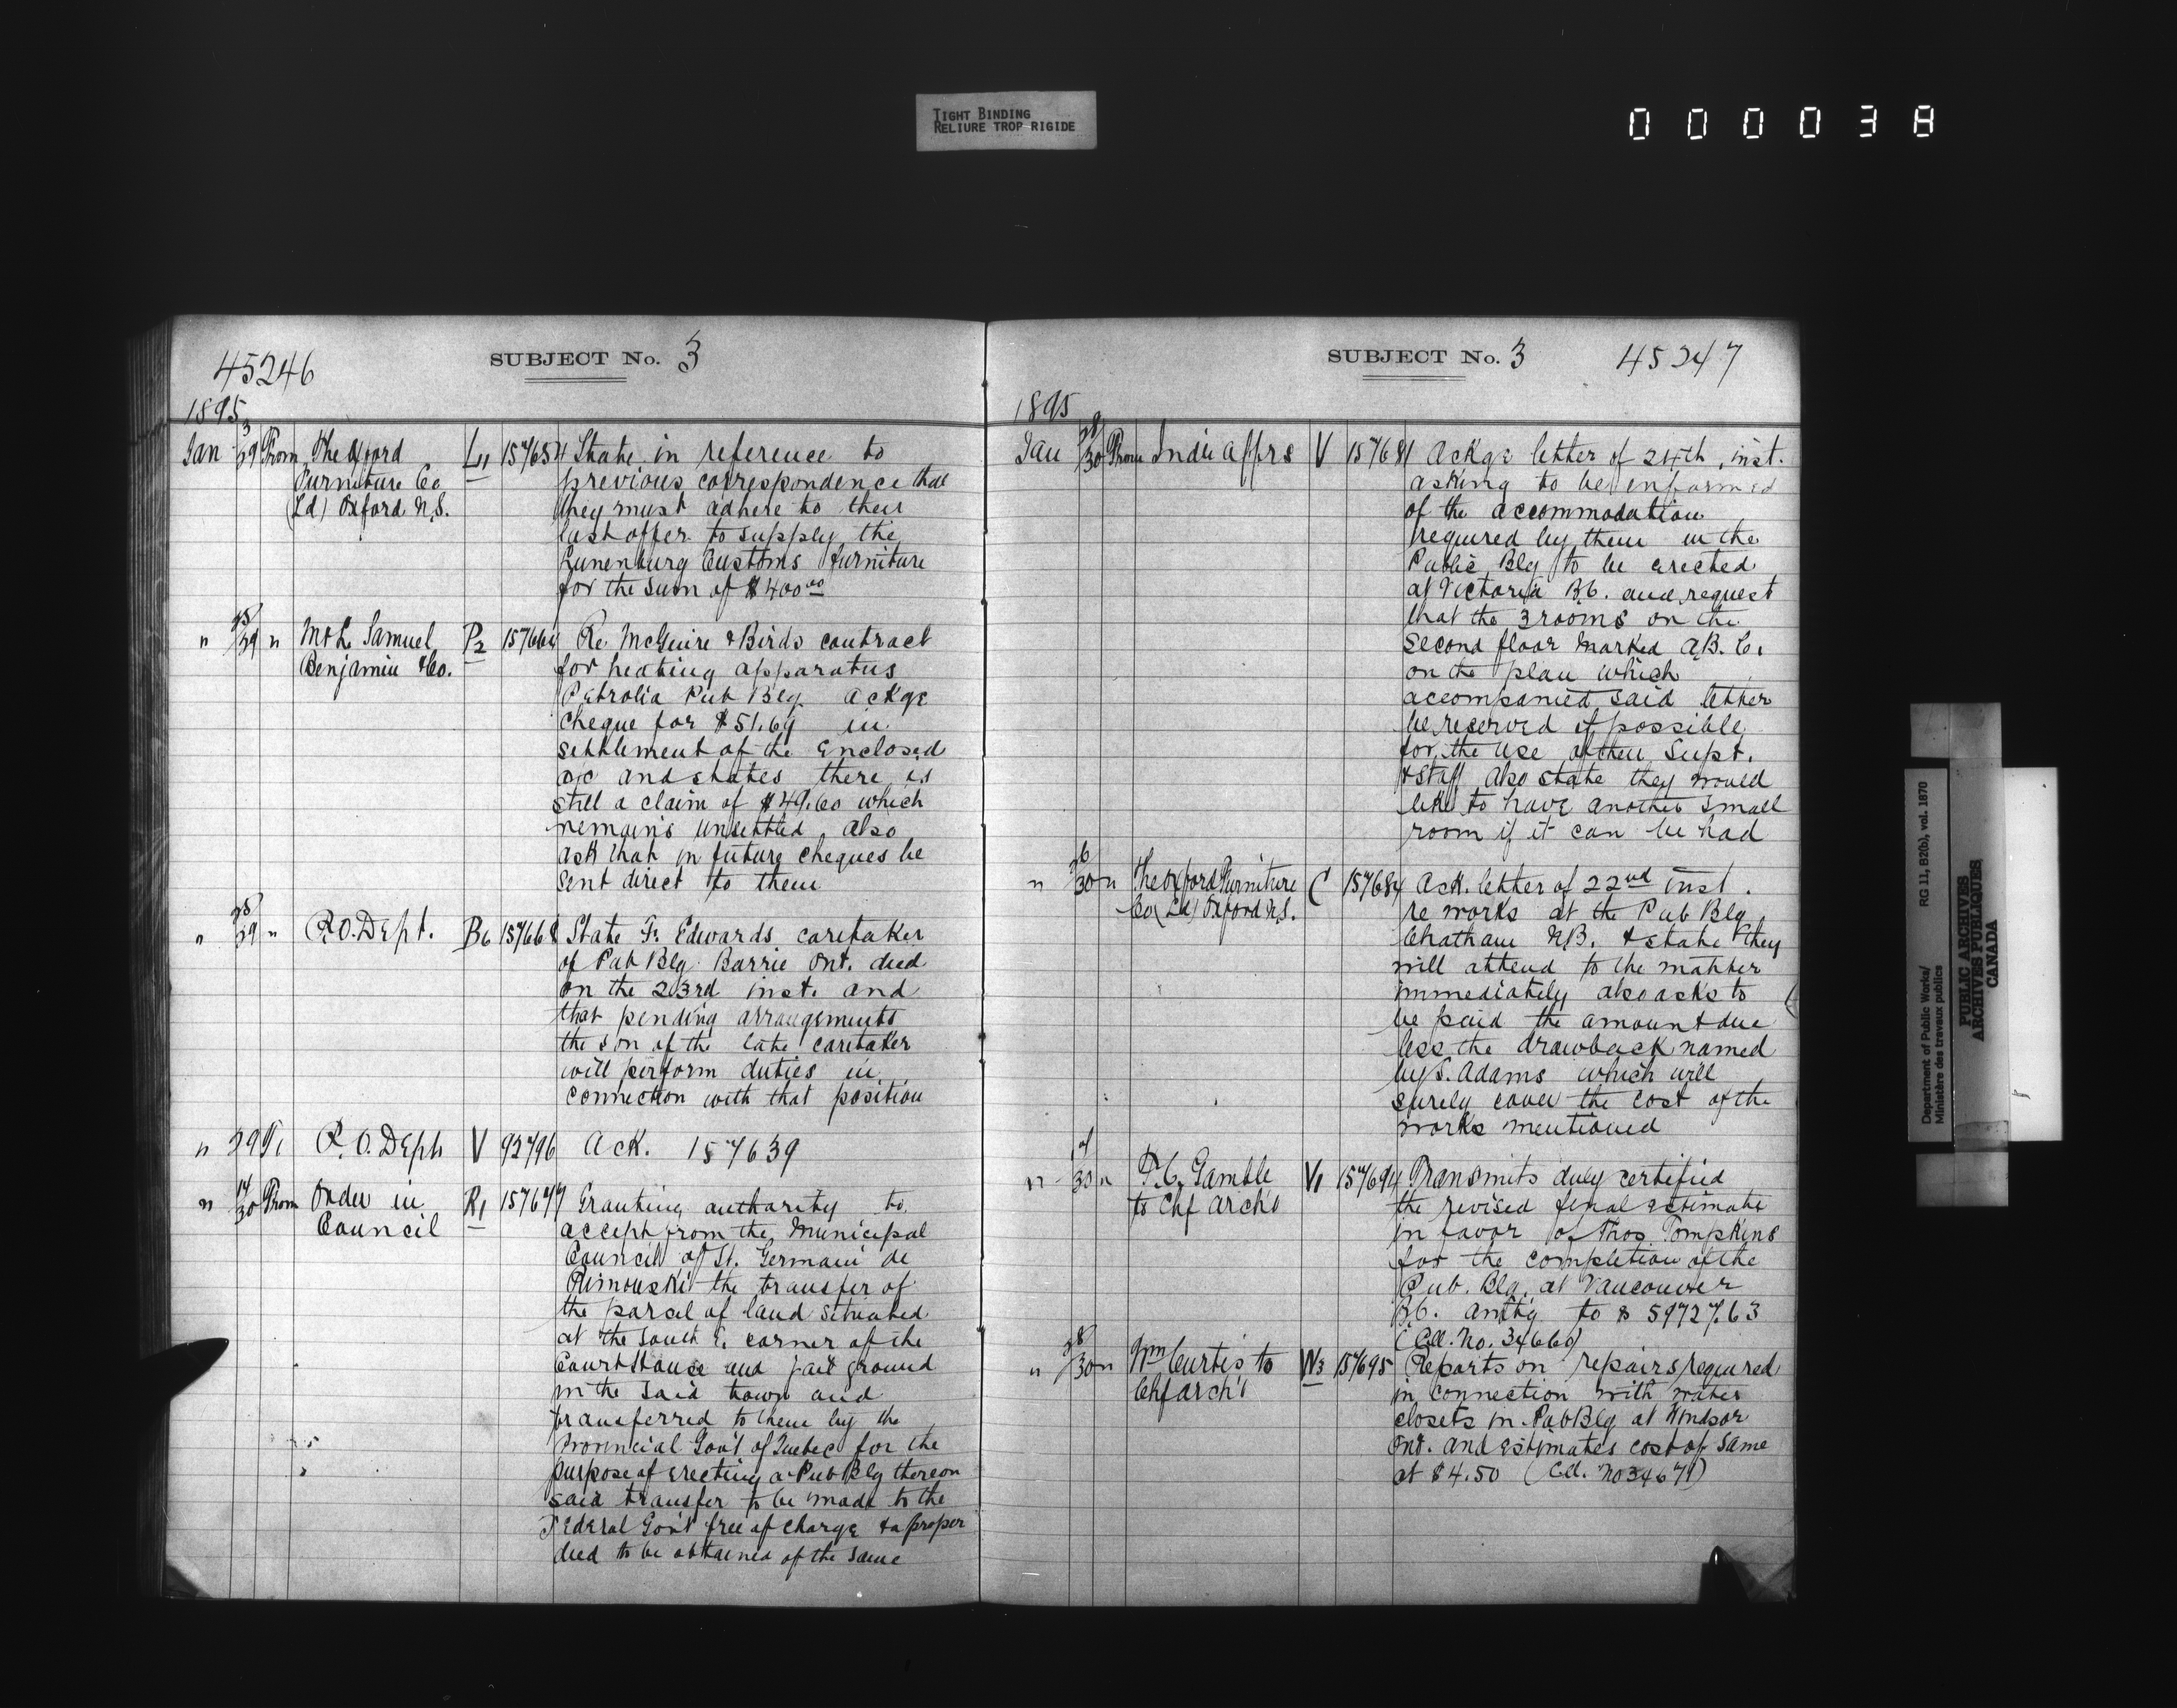 TIGHT BINDING
RELIURE TROP RIGIDE
000038
45246
SUBJECT No. 3
1895
Jan 29 From The Oxford L1 157654 State in reference to
Furniture Co previous correspondence that
(Ld) Oxford N.S. they must adhere to their
last offer to supply the
Lunenburg Customs furniture
for the sum of $400.00
" 28/29 " M & L Samuel P2 Re McGuire & Birds contract
Benjamin & Co. for heating apparatus
Petrolia Pub Blg Ackge
cheque for $51.69 in
settlement of the enclosed
a/c and states there is
still a claim of $49.60 which
remains unsettled also
ask that in future cheques be
sent direct to them
" 28/29 " P.O. Dept. B6 157668 State F. Edwards caretaker
of Pub Blg Barrie Ont. died
on the 23rd inst. and
that pending arrangements
the son of the late caretaker
will perform duties in
connection with that position
" 29 P.O. Dept V 92796 Ack. 157639
" 14/30 From Order in R1 157677 Granting authority to
Council accept from the Municipal
Council of St. Germain de
Rimouski the transfer of
the parcel of land situated
at the South E. corner of the
Court House and jail ground
in the said town and
transferred to them by the
Provincial Gov't of Quebec for the
purpose of erecting a Pub Blg thereon
said transfer to be made to the
Federal Gov't free of charge & a proper
deed to be obtained of the same
SUBJECT No. 3
45247
1895
Jan 28/30 From Indie Affrs V 157681 Ackge letter of 24th inst.
asking to be informed
of the accommodation
required by them in the
Public Blg to be erected
at Victoria B.C. and request
that the 3 rooms on the
second floor marked A.B.C.
on the plan which
accompanied said letter
be reserved if possible
for the use of their Supt.
& staff also state they would
like to have another small
room if it can be had
" 26/30 " The Oxford Furniture C 157684 Ack. letter of 22nd inst.
Co (Ld) Oxford N.S. re works at the Pub Blg
Chatham N.B. & state they
will attend to the matter
immediately also asks to
be paid the amount due
less the drawback named
by S. Adams which will
surely cover the cost of the
works mentioned
" 30 " F.C. Gamble V1 157694 Transmits duly certified
to Chf Arch't the revised final estimate
in favor of Thos Tompkins
for the completion of the
Pub. Blg. at Vancouver
B.C. amtg to $ 59727.63
(Cll. No. 34669)
" 28/30 " Wm Curtis to W3 157695 Reports on repairs required
Chf Arch't in connection with water
closets in Pub Blg at Windsor
Ont. and estimates cost of same
at $4.50 (Cll. No 34671)
Department of Public Works/ RG 11, B2(b), vol. 1870
Ministère des travaux publics
PUBLIC ARCHIVES
ARCHIVES PUBLIQUES
CANADA